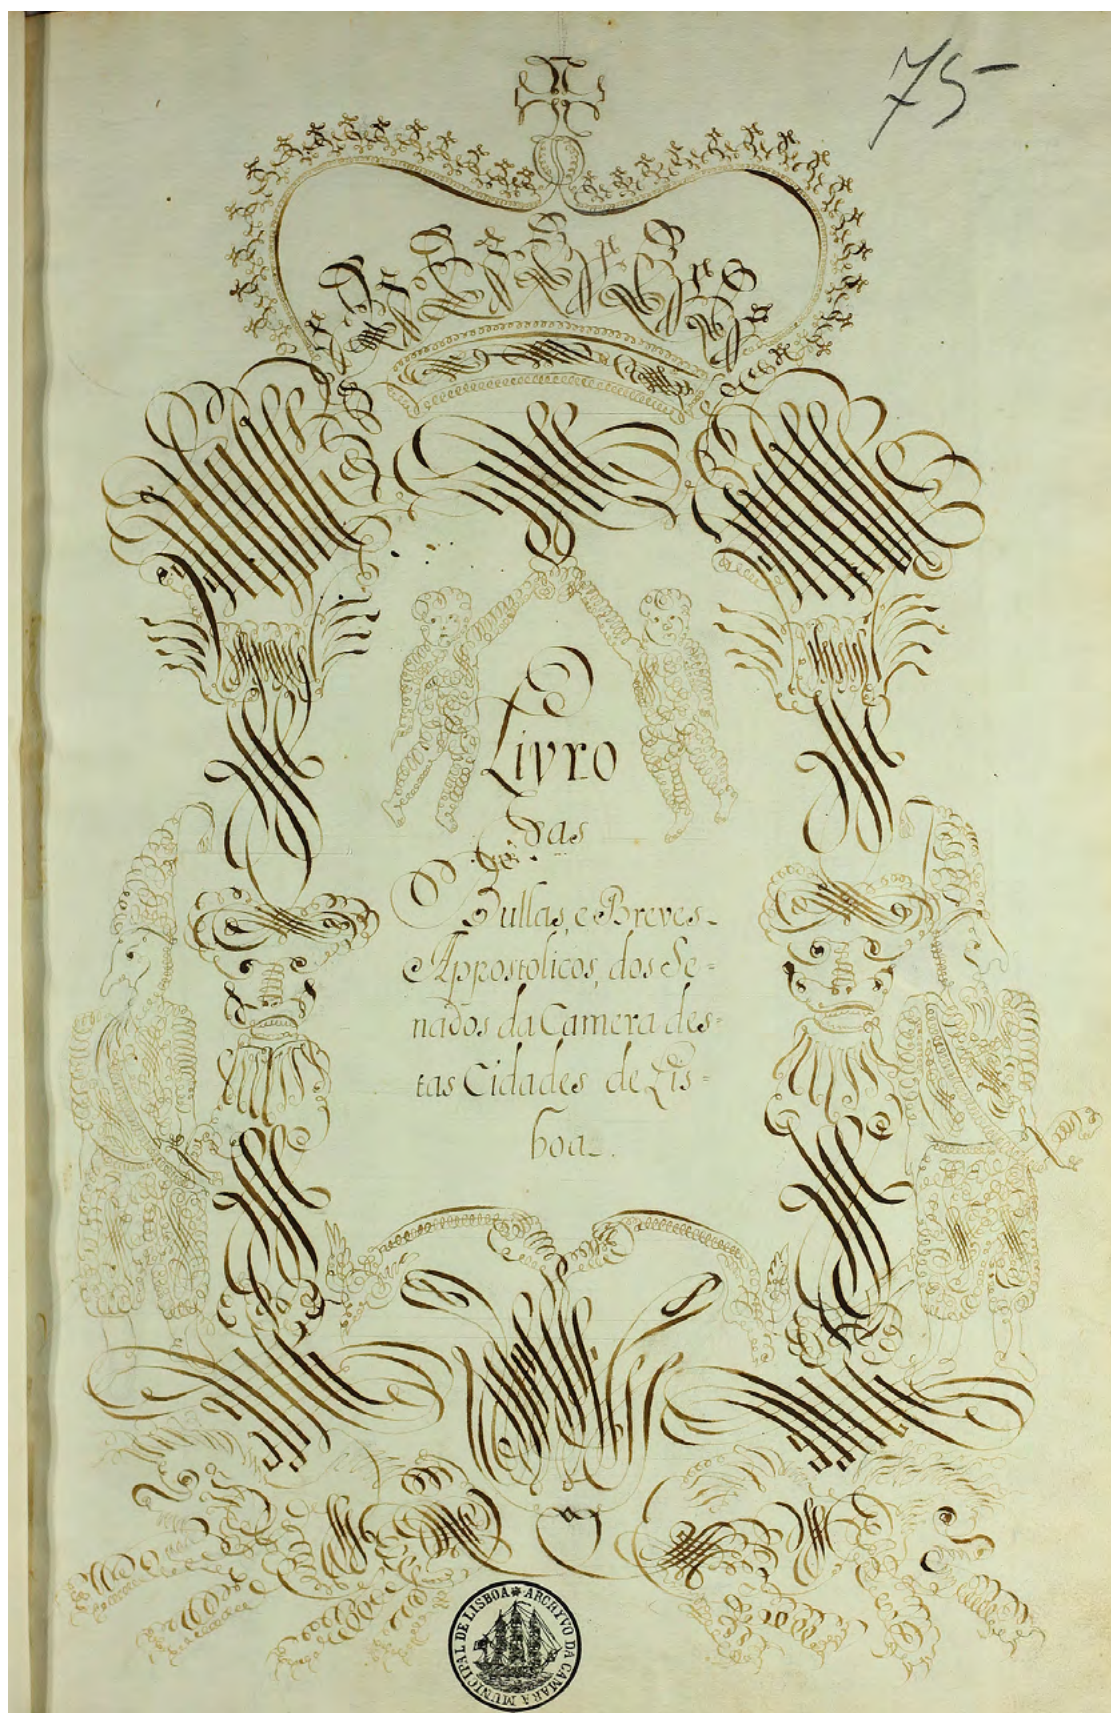 75
Livro
das
Bullas, e Breves
Appostolicos, dos Se=
nados da Camera des=
tas Cidades de Lis=
boa.
ARCHYVO DA CAMARA MUNICIPAL DE LISBOA